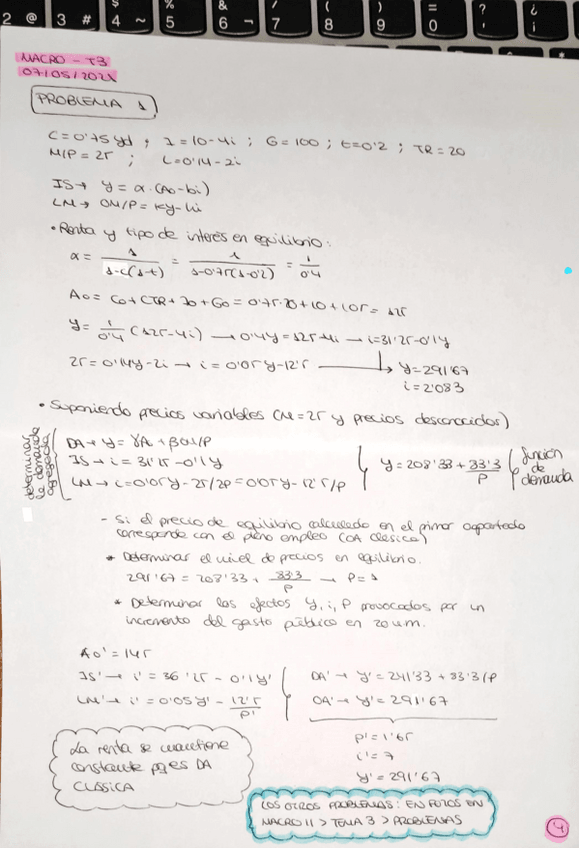 2 @ 3 # $ 4 ~ % 5 & 6 ¬ / 7 ( 8 ) 9 = 0 ? ' ¿ ¡
MACRO - T3
07/05/202
PROBLEMA 1
C=0'75yd ; I=10-4i ; G=100 ; t=0'2 ; TR=20
M/P=25 ; L=0'14-2i
IS→ y=α·(A0-bi)
LM→ OM/P=Ky-hi
• Renta y tipo de interés en equilibrio:
α = 1/(1-c(1-t)) = 1/(1-0.75(1-0'2)) = 1/0'4
A0= C0+CTR+I0+G0=0'75·20+10+105= 125
y= 1/0'4 (125-4i) → 0'4y=125-4i → i=31'25-0'1y
25=0'14y-2i → i=0'05y-12'5 → y=291'67
i=2'083
• Suponiendo precios variables (M=25 y precios desconocidos)
determinar la demanda agregada
DA→ y=γA+βOM/P
IS→ i=31'25-0'1y
LM→ i=0'05y-25/2P=0'05y-12'5/P
y=208'33+ 33'3/P
función de demanda
- Si el precio de equilibrio calculado en el primer apartado
corresponde con el pleno empleo (OA clásica)
* Determinar el nivel de precios en equilibrio.
291'67=208'33+ 83'3/P → P=1
* Determinar los efectos y, i, P provocados por un
incremento del gasto público en 20um.
A0'=145
IS'→ i'=36'25-0'1y'
LM'→ i'=0'05y'- 12'5/P'
DA'→ y'=241'33+83'3/P
OA'→ y'=291'67
P'=1'65
i'=7
y'=291'67
La renta se mantiene
constante pq es DA
CLÁSICA
LOS OTROS PROBLEMAS: EN FOTOS EN
MACRO II > TEMA 3 > PROBLEMAS
4